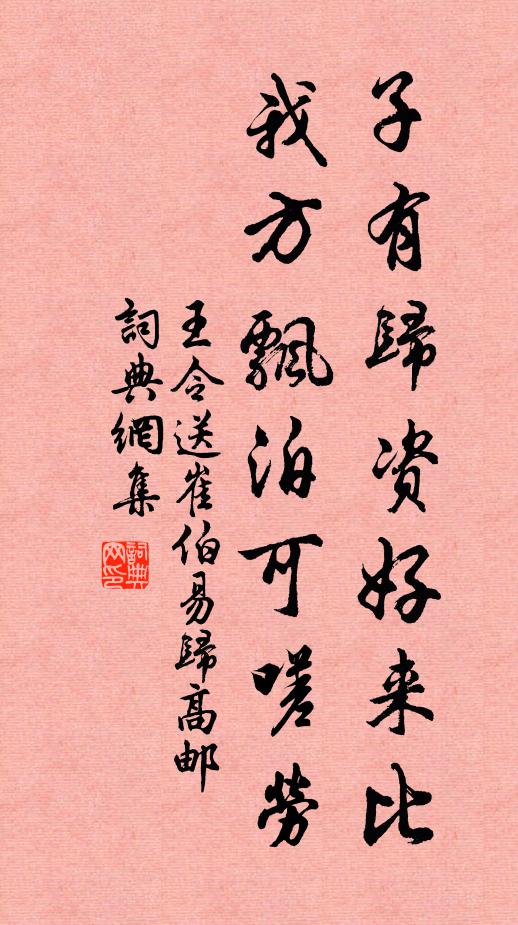 子有歸资好来比
我方飄泊可嗟勞
王令送崔伯易歸高邮
詞典網集
詞典
网印